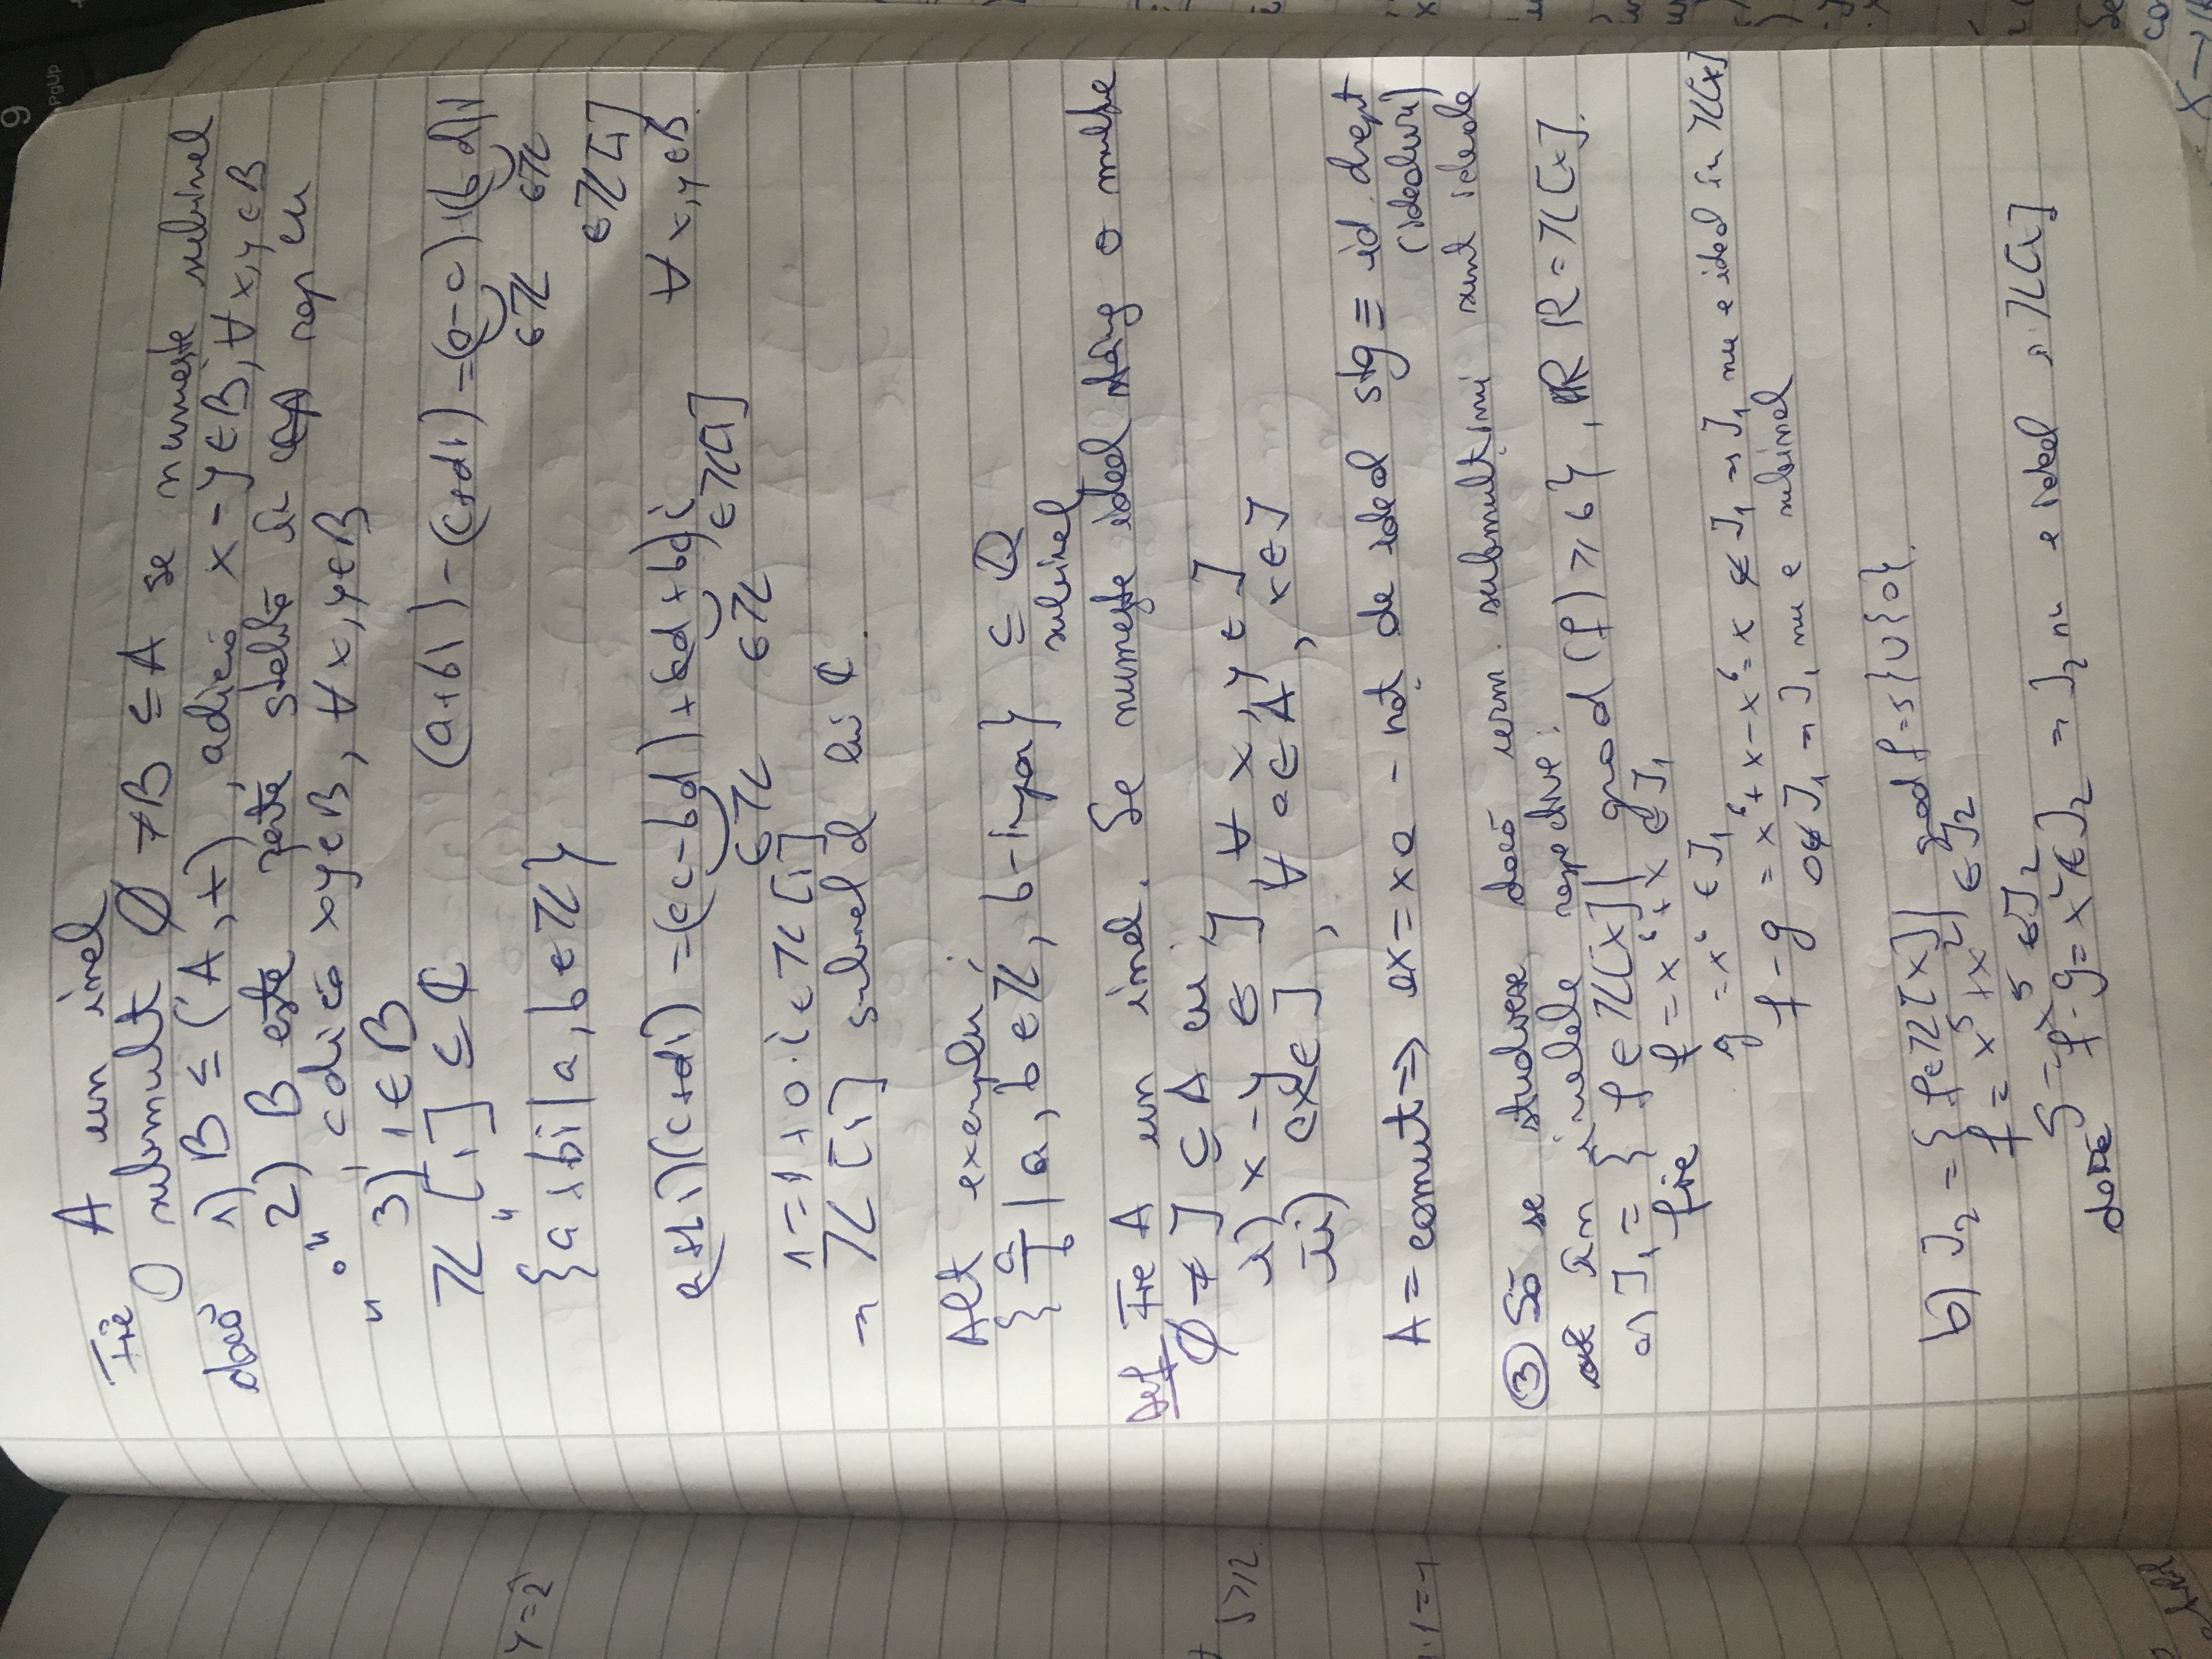 Fie A un inel
O submult ∅ ≠ B ⊆ A se numește subinel
dacă 1) B ≤ (A,+), adică x - y ∈ B, ∀ x,y ∈ B
2) B este parte stabilă în rap cu
"·", adică xy ∈ B, ∀ x,y ∈ B
3) 1 ∈ B
ℤ[i] ⊆ ℂ (a+bi) - (c+di) = (a-c) + (b-d)i
∈ℤ ∈ℤ
"
{a+bi | a,b ∈ ℤ} ∈ ℤ[i]
(a+bi)(c+di) = (ac-bd) + (ad+bc)i ∀ x,y ∈ B.
∈ℤ ∈ℤ ∈ℤ[i]
1 = 1 + 0·i ∈ ℤ[i]
⇒ ℤ[i] subinel al lui ℂ.
Alt exemplu:
{a/b | a,b ∈ ℤ, b-impar} ⊆ ℚ
subinel
Def Fie A un inel. Se numește ideal o mulțime
∅ ≠ J ⊆ A cu
i) x - y ∈ J ∀ x,y ∈ J
ii) ax ∈ J, ∀ a ∈ A, x ∈ J
A = comut ⇒ ax = xa - not de ideal stg ≡ id. drept
(idealuri)
③ Să se studieze dacă urm. submultimi sunt ideale
în inelele respective:
a) J₁ = { f ∈ ℤ[x] | grad(f) ≥ 6}, R = ℤ[x].
fie f = x⁶ + x ∈ J₁
g = x⁶ ∈ J₁
f - g = x⁶ + x - x⁶ = x ∉ J₁ ⇒ J₁ nu e ideal în ℤ[x]
0 ∉ J₁ ⇒ J₁ nu e subinel
b) J₂ = { f ∈ ℤ[x] | grad f = 5} ∪ {0}.
f = x⁵ + x² ∈ J₂
g = x⁵ ∈ J₂
dar f - g = x² ∉ J₂ ⇒ J₂ nu e ideal în ℤ[x]
y = 2̂
1 = -1